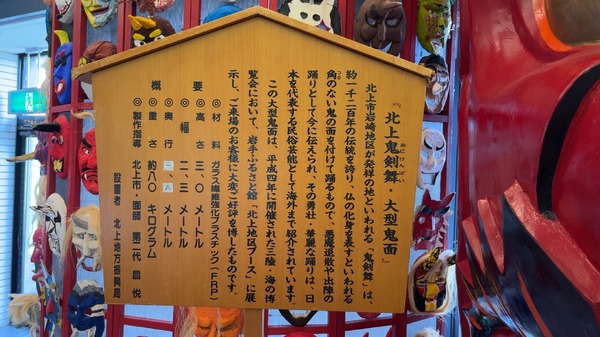 『北上鬼剣舞・大型鬼面』
おにけんばい
北上市岩崎地区が発祥の地といわれる「鬼剣舞」は、
約一千二百年の伝統を誇り、仏の化身を表すといわれる
角のない鬼の面を付けて踊るもので、悪魔退散や出陣の
つの
踊りとして今に伝えられ、その勇壮・華麗な踊りは、日
本を代表する民俗芸能として海外まで紹介されています。
この大型鬼面は、平成四年に開催された三陸・海の博
覧会において、岩手ふるさと館・北上地方ブースに展
示し、ご来場のお客様に大変ご好評を博したものです。
概要
◎材料 ガラス繊維強化プラスチック(FRP)
◎高さ 三、〇メートル
◎幅 二、三メートル
◎奥行 メートル
◎重さ 約八〇キログラム
◎製作指導 北上市・面師 第二代 昌悦
設置者 北上地方振興局